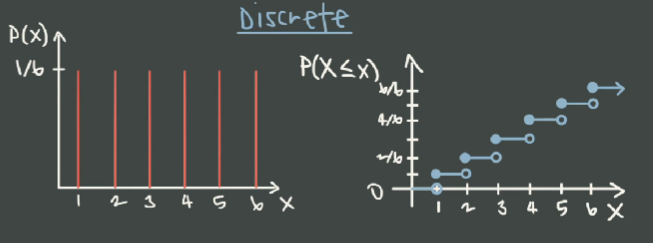 Discrete
P(x)
1/6
1 2 3 4 5 6 X
P(X≤x)
6/6
4/6
2/6
0
1 2 3 4 5 6 X